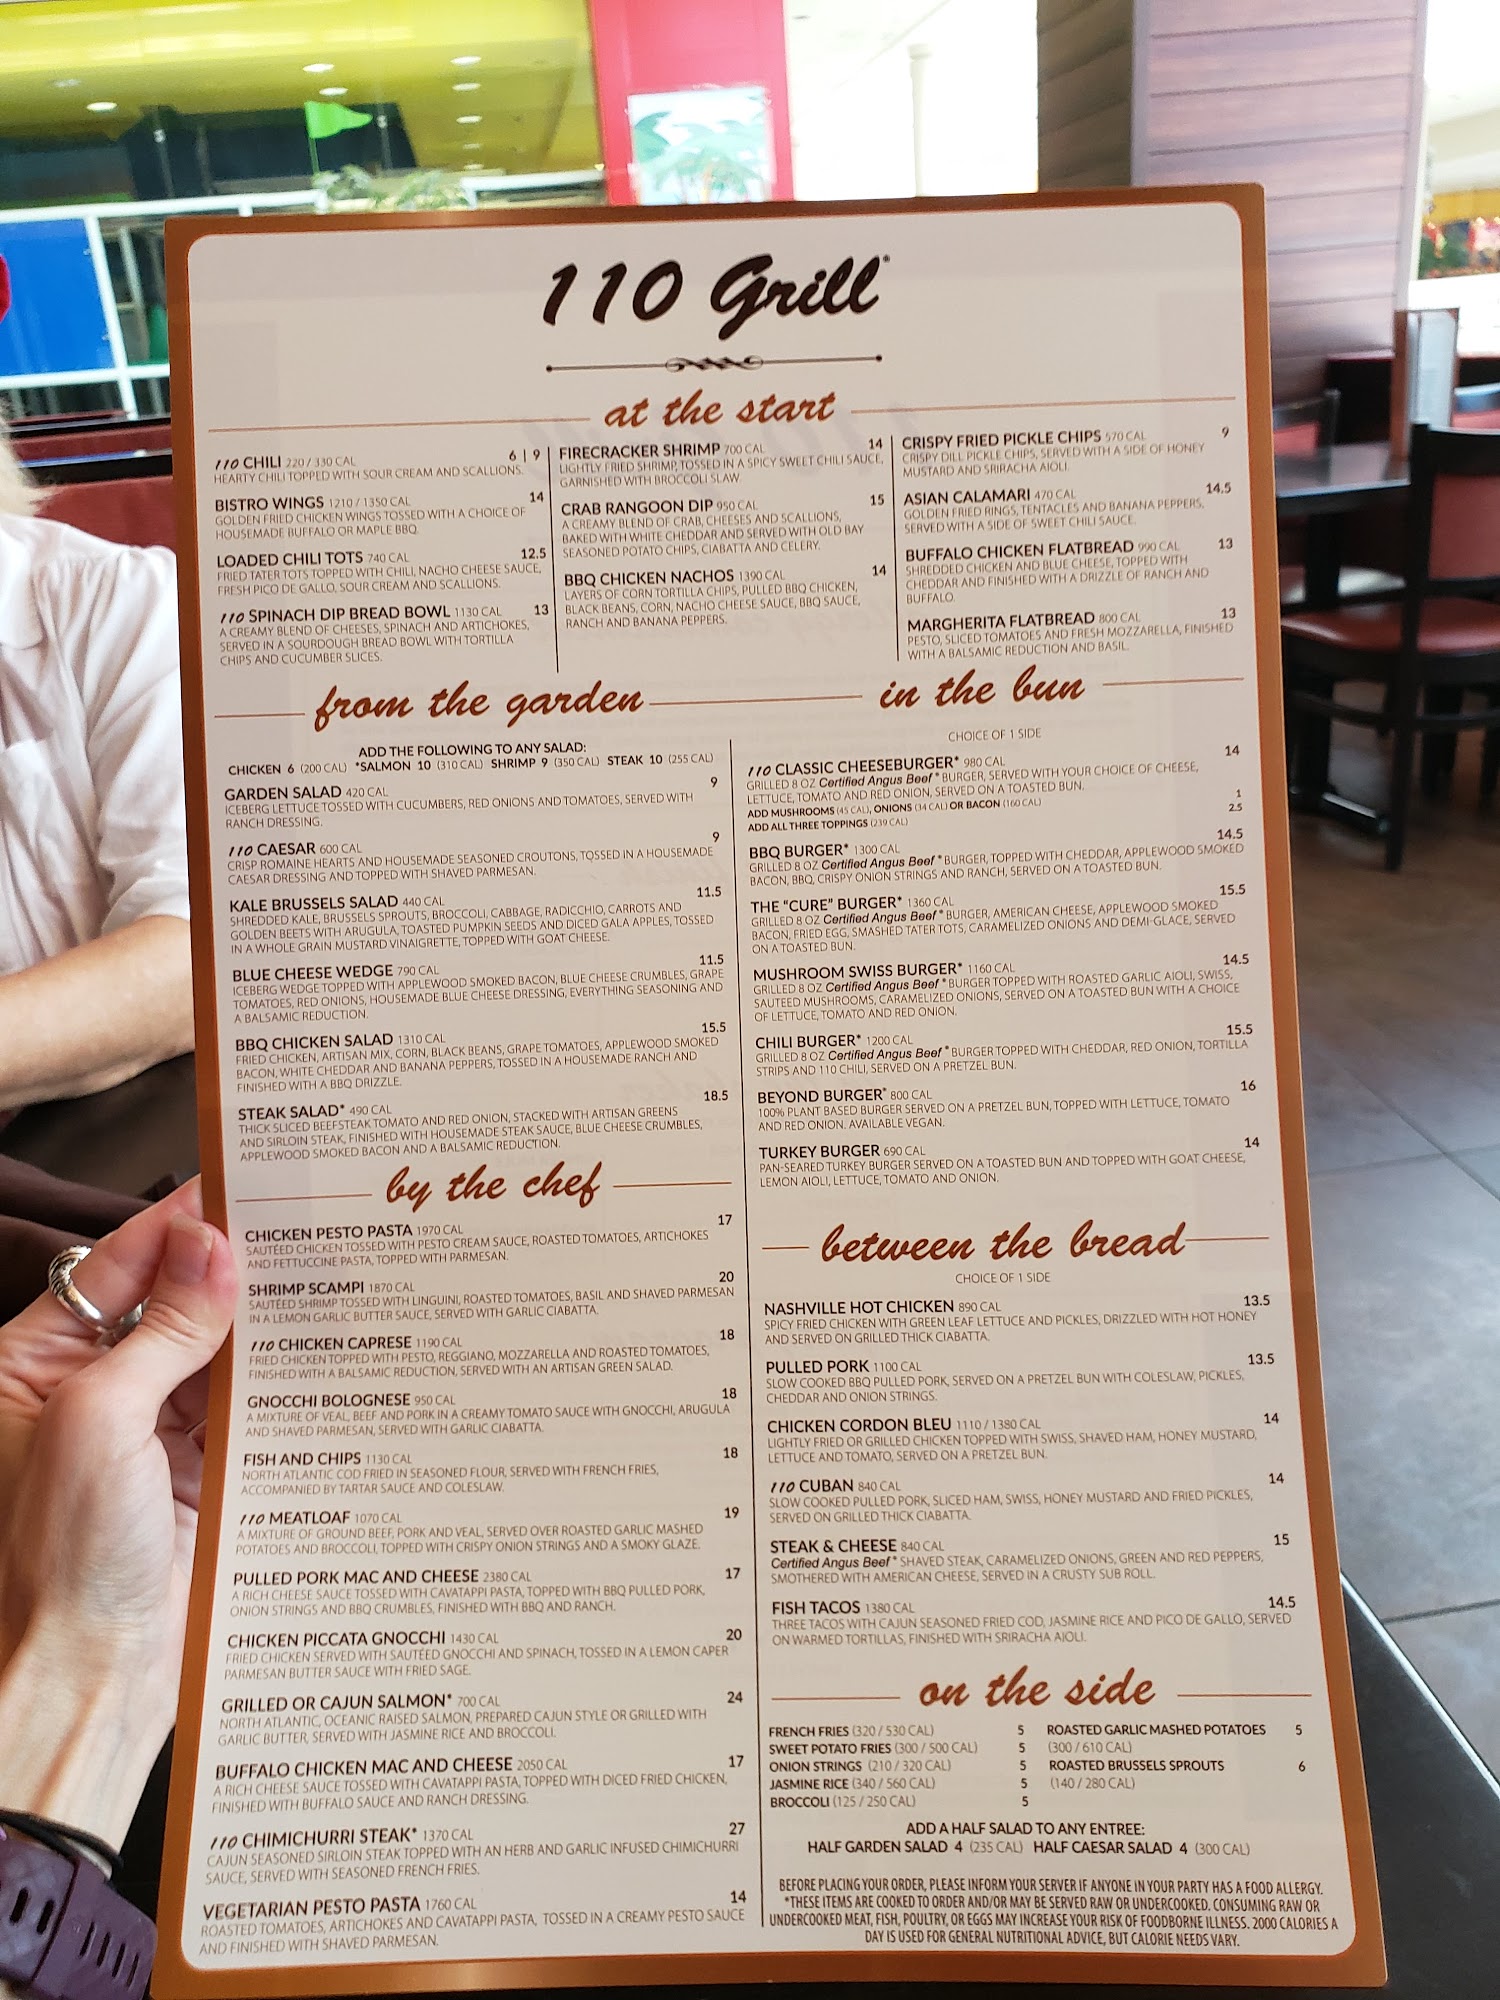 110 Grill®
at the start
110 CHILI 220 / 330 CAL 6 | 9
HEARTY CHILI TOPPED WITH SOUR CREAM AND SCALLIONS.
BISTRO WINGS 1210 / 1350 CAL 14
GOLDEN FRIED CHICKEN WINGS TOSSED WITH A CHOICE OF
HOUSEMADE BUFFALO OR MAPLE BBQ.
LOADED CHILI TOTS 740 CAL 12.5
FRIED TATER TOTS TOPPED WITH CHILI, NACHO CHEESE SAUCE,
FRESH PICO DE GALLO, SOUR CREAM AND SCALLIONS.
110 SPINACH DIP BREAD BOWL 1130 CAL 13
A CREAMY BLEND OF CHEESES, SPINACH AND ARTICHOKES,
SERVED IN A SOURDOUGH BREAD BOWL WITH TORTILLA
CHIPS AND CUCUMBER SLICES.
FIRECRACKER SHRIMP 700 CAL 14
LIGHTLY FRIED SHRIMP, TOSSED IN A SPICY SWEET CHILI SAUCE,
GARNISHED WITH BROCCOLI SLAW.
CRAB RANGOON DIP 950 CAL 15
A CREAMY BLEND OF CRAB, CHEESES AND SCALLIONS,
BAKED WITH WHITE CHEDDAR AND SERVED WITH OLD BAY
SEASONED POTATO CHIPS, CIABATTA AND CELERY.
BBQ CHICKEN NACHOS 1390 CAL 14
LAYERS OF CORN TORTILLA CHIPS, PULLED BBQ CHICKEN,
BLACK BEANS, CORN, NACHO CHEESE SAUCE, BBQ SAUCE,
RANCH AND BANANA PEPPERS.
CRISPY FRIED PICKLE CHIPS 570 CAL 9
CRISPY DILL PICKLE CHIPS, SERVED WITH A SIDE OF HONEY
MUSTARD AND SRIRACHA AIOLI.
ASIAN CALAMARI 470 CAL 14.5
GOLDEN FRIED RINGS, TENTACLES AND BANANA PEPPERS,
SERVED WITH A SIDE OF SWEET CHILI SAUCE.
BUFFALO CHICKEN FLATBREAD 990 CAL 13
SHREDDED CHICKEN AND BLUE CHEESE, TOPPED WITH
CHEDDAR AND FINISHED WITH A DRIZZLE OF RANCH AND
BUFFALO.
MARGHERITA FLATBREAD 800 CAL 13
PESTO, SLICED TOMATOES AND FRESH MOZZARELLA, FINISHED
WITH A BALSAMIC REDUCTION AND BASIL.
from the garden
ADD THE FOLLOWING TO ANY SALAD:
CHICKEN 6 (200 CAL) *SALMON 10 (310 CAL) SHRIMP 9 (350 CAL) STEAK 10 (255 CAL)
GARDEN SALAD 420 CAL 9
ICEBERG LETTUCE TOSSED WITH CUCUMBERS, RED ONIONS AND TOMATOES, SERVED WITH
RANCH DRESSING.
110 CAESAR 600 CAL 9
CRISP ROMAINE HEARTS AND HOUSEMADE SEASONED CROUTONS, TOSSED IN A HOUSEMADE
CAESAR DRESSING AND TOPPED WITH SHAVED PARMESAN.
KALE BRUSSELS SALAD 440 CAL 11.5
SHREDDED KALE, BRUSSELS SPROUTS, BROCCOLI, CABBAGE, RADICCHIO, CARROTS AND
GOLDEN BEETS WITH ARUGULA, TOASTED PUMPKIN SEEDS AND DICED GALA APPLES, TOSSED
IN A WHOLE GRAIN MUSTARD VINAIGRETTE, TOPPED WITH GOAT CHEESE.
BLUE CHEESE WEDGE 790 CAL 11.5
ICEBERG WEDGE TOPPED WITH APPLEWOOD SMOKED BACON, BLUE CHEESE CRUMBLES, GRAPE
TOMATOES, RED ONIONS, HOUSEMADE BLUE CHEESE DRESSING, EVERYTHING SEASONING AND
A BALSAMIC REDUCTION.
BBQ CHICKEN SALAD 1310 CAL 15.5
FRIED CHICKEN, ARTISAN MIX, CORN, BLACK BEANS, GRAPE TOMATOES, APPLEWOOD SMOKED
BACON, WHITE CHEDDAR AND BANANA PEPPERS, TOSSED IN A HOUSEMADE RANCH AND
FINISHED WITH A BBQ DRIZZLE.
STEAK SALAD* 490 CAL 18.5
THICK SLICED BEEFSTEAK TOMATO AND RED ONION, STACKED WITH ARTISAN GREENS
AND SIRLOIN STEAK, FINISHED WITH HOUSEMADE STEAK SAUCE, BLUE CHEESE CRUMBLES,
APPLEWOOD SMOKED BACON AND A BALSAMIC REDUCTION.
by the chef
CHICKEN PESTO PASTA 1970 CAL 17
SAUTÉED CHICKEN TOSSED WITH PESTO CREAM SAUCE, ROASTED TOMATOES, ARTICHOKES
AND FETTUCCINE PASTA, TOPPED WITH PARMESAN.
SHRIMP SCAMPI 1870 CAL 20
SAUTÉED SHRIMP TOSSED WITH LINGUINI, ROASTED TOMATOES, BASIL AND SHAVED PARMESAN
IN A LEMON GARLIC BUTTER SAUCE, SERVED WITH GARLIC CIABATTA.
110 CHICKEN CAPRESE 1190 CAL 18
FRIED CHICKEN TOPPED WITH PESTO, REGGIANO, MOZZARELLA AND ROASTED TOMATOES,
FINISHED WITH A BALSAMIC REDUCTION, SERVED WITH AN ARTISAN GREEN SALAD.
GNOCCHI BOLOGNESE 950 CAL 18
A MIXTURE OF VEAL, BEEF AND PORK IN A CREAMY TOMATO SAUCE WITH GNOCCHI, ARUGULA
AND SHAVED PARMESAN, SERVED WITH GARLIC CIABATTA.
FISH AND CHIPS 1130 CAL 18
NORTH ATLANTIC COD FRIED IN SEASONED FLOUR, SERVED WITH FRENCH FRIES,
ACCOMPANIED BY TARTAR SAUCE AND COLESLAW.
110 MEATLOAF 1070 CAL 19
A MIXTURE OF GROUND BEEF, PORK AND VEAL, SERVED OVER ROASTED GARLIC MASHED
POTATOES AND BROCCOLI, TOPPED WITH CRISPY ONION STRINGS AND A SMOKY GLAZE.
PULLED PORK MAC AND CHEESE 2380 CAL 17
A RICH CHEESE SAUCE TOSSED WITH CAVATAPPI PASTA, TOPPED WITH BBQ PULLED PORK,
ONION STRINGS AND BBQ CRUMBLES, FINISHED WITH BBQ AND RANCH.
CHICKEN PICCATA GNOCCHI 1430 CAL 20
FRIED CHICKEN SERVED WITH SAUTÉED GNOCCHI AND SPINACH, TOSSED IN A LEMON CAPER
PARMESAN BUTTER SAUCE WITH FRIED SAGE.
GRILLED OR CAJUN SALMON* 700 CAL 24
NORTH ATLANTIC, OCEANIC RAISED SALMON, PREPARED CAJUN STYLE OR GRILLED WITH
GARLIC BUTTER, SERVED WITH JASMINE RICE AND BROCCOLI.
BUFFALO CHICKEN MAC AND CHEESE 2050 CAL 17
A RICH CHEESE SAUCE TOSSED WITH CAVATAPPI PASTA, TOPPED WITH DICED FRIED CHICKEN,
FINISHED WITH BUFFALO SAUCE AND RANCH DRESSING.
110 CHIMICHURRI STEAK* 1370 CAL 27
CAJUN SEASONED SIRLOIN STEAK TOPPED WITH AN HERB AND GARLIC INFUSED CHIMICHURRI
SAUCE, SERVED WITH SEASONED FRENCH FRIES.
VEGETARIAN PESTO PASTA 1760 CAL 14
ROASTED TOMATOES, ARTICHOKES AND CAVATAPPI PASTA, TOSSED IN A CREAMY PESTO SAUCE
AND FINISHED WITH SHAVED PARMESAN.
in the bun
CHOICE OF 1 SIDE
110 CLASSIC CHEESEBURGER* 980 CAL 14
GRILLED 8 OZ Certified Angus Beef® BURGER, SERVED WITH YOUR CHOICE OF CHEESE,
LETTUCE, TOMATO AND RED ONION, SERVED ON A TOASTED BUN.
ADD MUSHROOMS (45 CAL), ONIONS (34 CAL) OR BACON (160 CAL) 1
ADD ALL THREE TOPPINGS (239 CAL) 2.5
BBQ BURGER* 1300 CAL 14.5
GRILLED 8 OZ Certified Angus Beef® BURGER, TOPPED WITH CHEDDAR, APPLEWOOD SMOKED
BACON, BBQ, CRISPY ONION STRINGS AND RANCH, SERVED ON A TOASTED BUN.
THE "CURE" BURGER* 1360 CAL 15.5
GRILLED 8 OZ Certified Angus Beef® BURGER, AMERICAN CHEESE, APPLEWOOD SMOKED
BACON, FRIED EGG, SMASHED TATER TOTS, CARAMELIZED ONIONS AND DEMI-GLACE, SERVED
ON A TOASTED BUN.
MUSHROOM SWISS BURGER* 1160 CAL 14.5
GRILLED 8 OZ Certified Angus Beef® BURGER TOPPED WITH ROASTED GARLIC AIOLI, SWISS,
SAUTEED MUSHROOMS, CARAMELIZED ONIONS, SERVED ON A TOASTED BUN WITH A CHOICE
OF LETTUCE, TOMATO AND RED ONION.
CHILI BURGER* 1200 CAL 15.5
GRILLED 8 OZ Certified Angus Beef® BURGER TOPPED WITH CHEDDAR, RED ONION, TORTILLA
STRIPS AND 110 CHILI, SERVED ON A PRETZEL BUN.
BEYOND BURGER* 800 CAL 16
100% PLANT BASED BURGER SERVED ON A PRETZEL BUN, TOPPED WITH LETTUCE, TOMATO
AND RED ONION. AVAILABLE VEGAN.
TURKEY BURGER 690 CAL 14
PAN-SEARED TURKEY BURGER SERVED ON A TOASTED BUN AND TOPPED WITH GOAT CHEESE,
LEMON AIOLI, LETTUCE, TOMATO AND ONION.
between the bread
CHOICE OF 1 SIDE
NASHVILLE HOT CHICKEN 890 CAL 13.5
SPICY FRIED CHICKEN WITH GREEN LEAF LETTUCE AND PICKLES, DRIZZLED WITH HOT HONEY
AND SERVED ON GRILLED THICK CIABATTA.
PULLED PORK 1100 CAL 13.5
SLOW COOKED BBQ PULLED PORK, SERVED ON A PRETZEL BUN WITH COLESLAW, PICKLES,
CHEDDAR AND ONION STRINGS.
CHICKEN CORDON BLEU 1110 / 1380 CAL 14
LIGHTLY FRIED OR GRILLED CHICKEN TOPPED WITH SWISS, SHAVED HAM, HONEY MUSTARD,
LETTUCE AND TOMATO, SERVED ON A PRETZEL BUN.
110 CUBAN 840 CAL 14
SLOW COOKED PULLED PORK, SLICED HAM, SWISS, HONEY MUSTARD AND FRIED PICKLES,
SERVED ON GRILLED THICK CIABATTA.
STEAK & CHEESE 840 CAL 15
Certified Angus Beef® SHAVED STEAK, CARAMELIZED ONIONS, GREEN AND RED PEPPERS,
SMOTHERED WITH AMERICAN CHEESE, SERVED IN A CRUSTY SUB ROLL.
FISH TACOS 1380 CAL 14.5
THREE TACOS WITH CAJUN SEASONED FRIED COD, JASMINE RICE AND PICO DE GALLO, SERVED
ON WARMED TORTILLAS, FINISHED WITH SRIRACHA AIOLI.
on the side
FRENCH FRIES (320 / 530 CAL) 5
SWEET POTATO FRIES (300 / 500 CAL) 5
ONION STRINGS (210 / 320 CAL) 5
JASMINE RICE (340 / 560 CAL) 5
BROCCOLI (125 / 250 CAL) 5
ROASTED GARLIC MASHED POTATOES 5
(300 / 610 CAL)
ROASTED BRUSSELS SPROUTS 6
(140 / 280 CAL)
ADD A HALF SALAD TO ANY ENTREE:
HALF GARDEN SALAD 4 (235 CAL) HALF CAESAR SALAD 4 (300 CAL)
BEFORE PLACING YOUR ORDER, PLEASE INFORM YOUR SERVER IF ANYONE IN YOUR PARTY HAS A FOOD ALLERGY.
*THESE ITEMS ARE COOKED TO ORDER AND/OR MAY BE SERVED RAW OR UNDERCOOKED. CONSUMING RAW OR
UNDERCOOKED MEAT, FISH, POULTRY, OR EGGS MAY INCREASE YOUR RISK OF FOODBORNE ILLNESS. 2000 CALORIES A
DAY IS USED FOR GENERAL NUTRITIONAL ADVICE, BUT CALORIE NEEDS VARY.